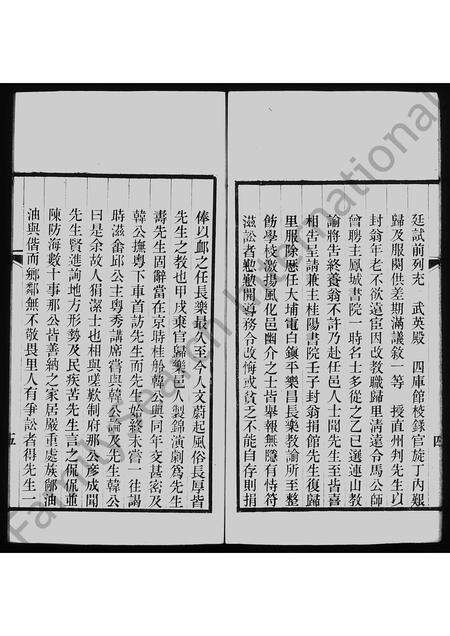 廷試前列充 武英殿 四庫館校錄官旋丁內艱
歸及服闋供差期滿議敘一等 授直州判先生以
封翁年老不欲遠宦因改教職歸里清遠合馬公師
曾聘主鳳城書院一時名士多從之乙巳選連山教
諭將告終養翁不許乃赴任邑人士聞先生至皆喜
相告呈請兼主桂陽書院壬子封翁捐館先生復歸
里服除歷任大埔電白鎮平樂昌長樂教諭所至整
飭學校激揚風化邑幽介之士皆舉報無隱有恃符
滋訟者懃懃開導務令改悔或貧乏不能自存則捐
俸以卹之任長樂最久至今人文蔚起風俗長厚皆
先生之教也甲戌棄官歸樂邑人製錦演劇為先生
壽先生固辭當在京時桂舲韓公與同年交甚密及
韓公撫粵下車首訪先生而先生始終未嘗一往謁
時滋畬邱公主粵秀講席嘗與韓公論及先生韓公
曰是余故人狷潔士也相與嗟歎制府那公彥成聞
先生賢進詢地方形勢及民疾苦先生言之侃侃並
陳防海數十事那公皆善納之家居嚴重處族卹油
油與偕而鄉鄰無不敬畏里人有爭訟者得先生一
四
五
Fair Use
International